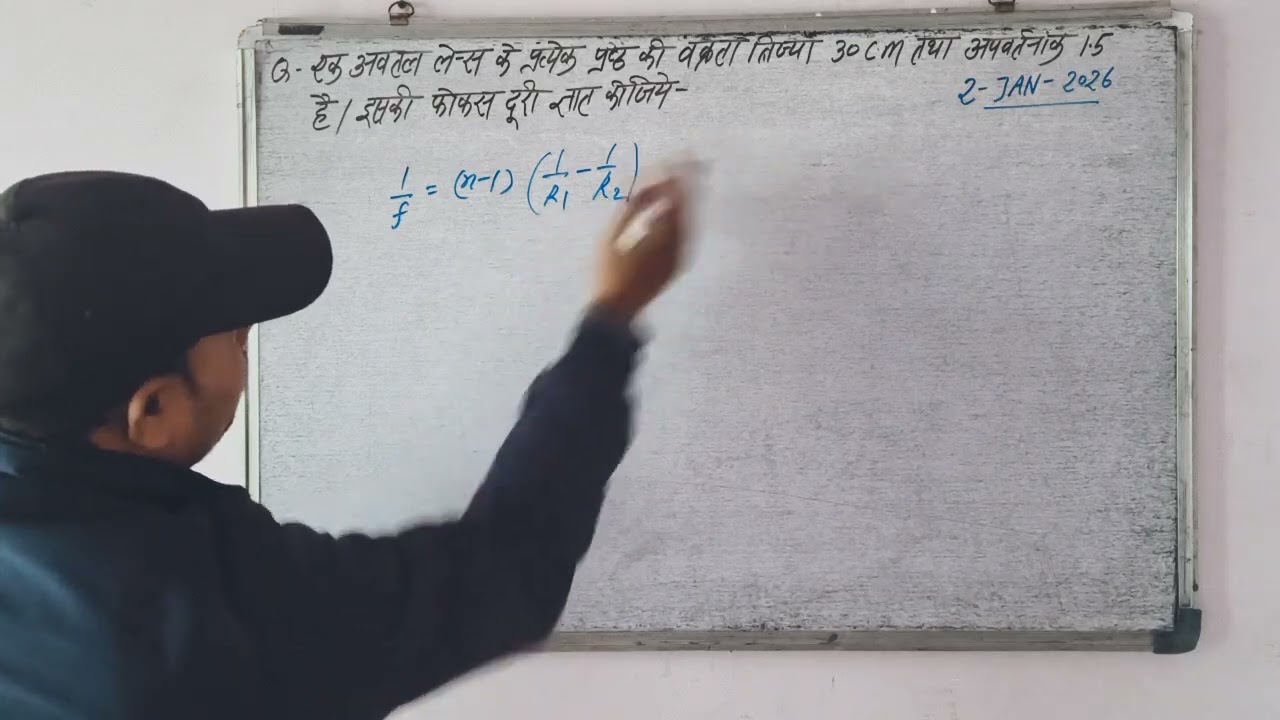 Q- एक अवतल लेन्स के प्रत्येक पृष्ठ की वक्रता त्रिज्या 30 cm तथा अपवर्तनांक 1.5
है / इसकी फोकस दूरी ज्ञात कीजिये-
2- JAN- 2026
1/f = (n-1) (1/R1 - 1/R2)